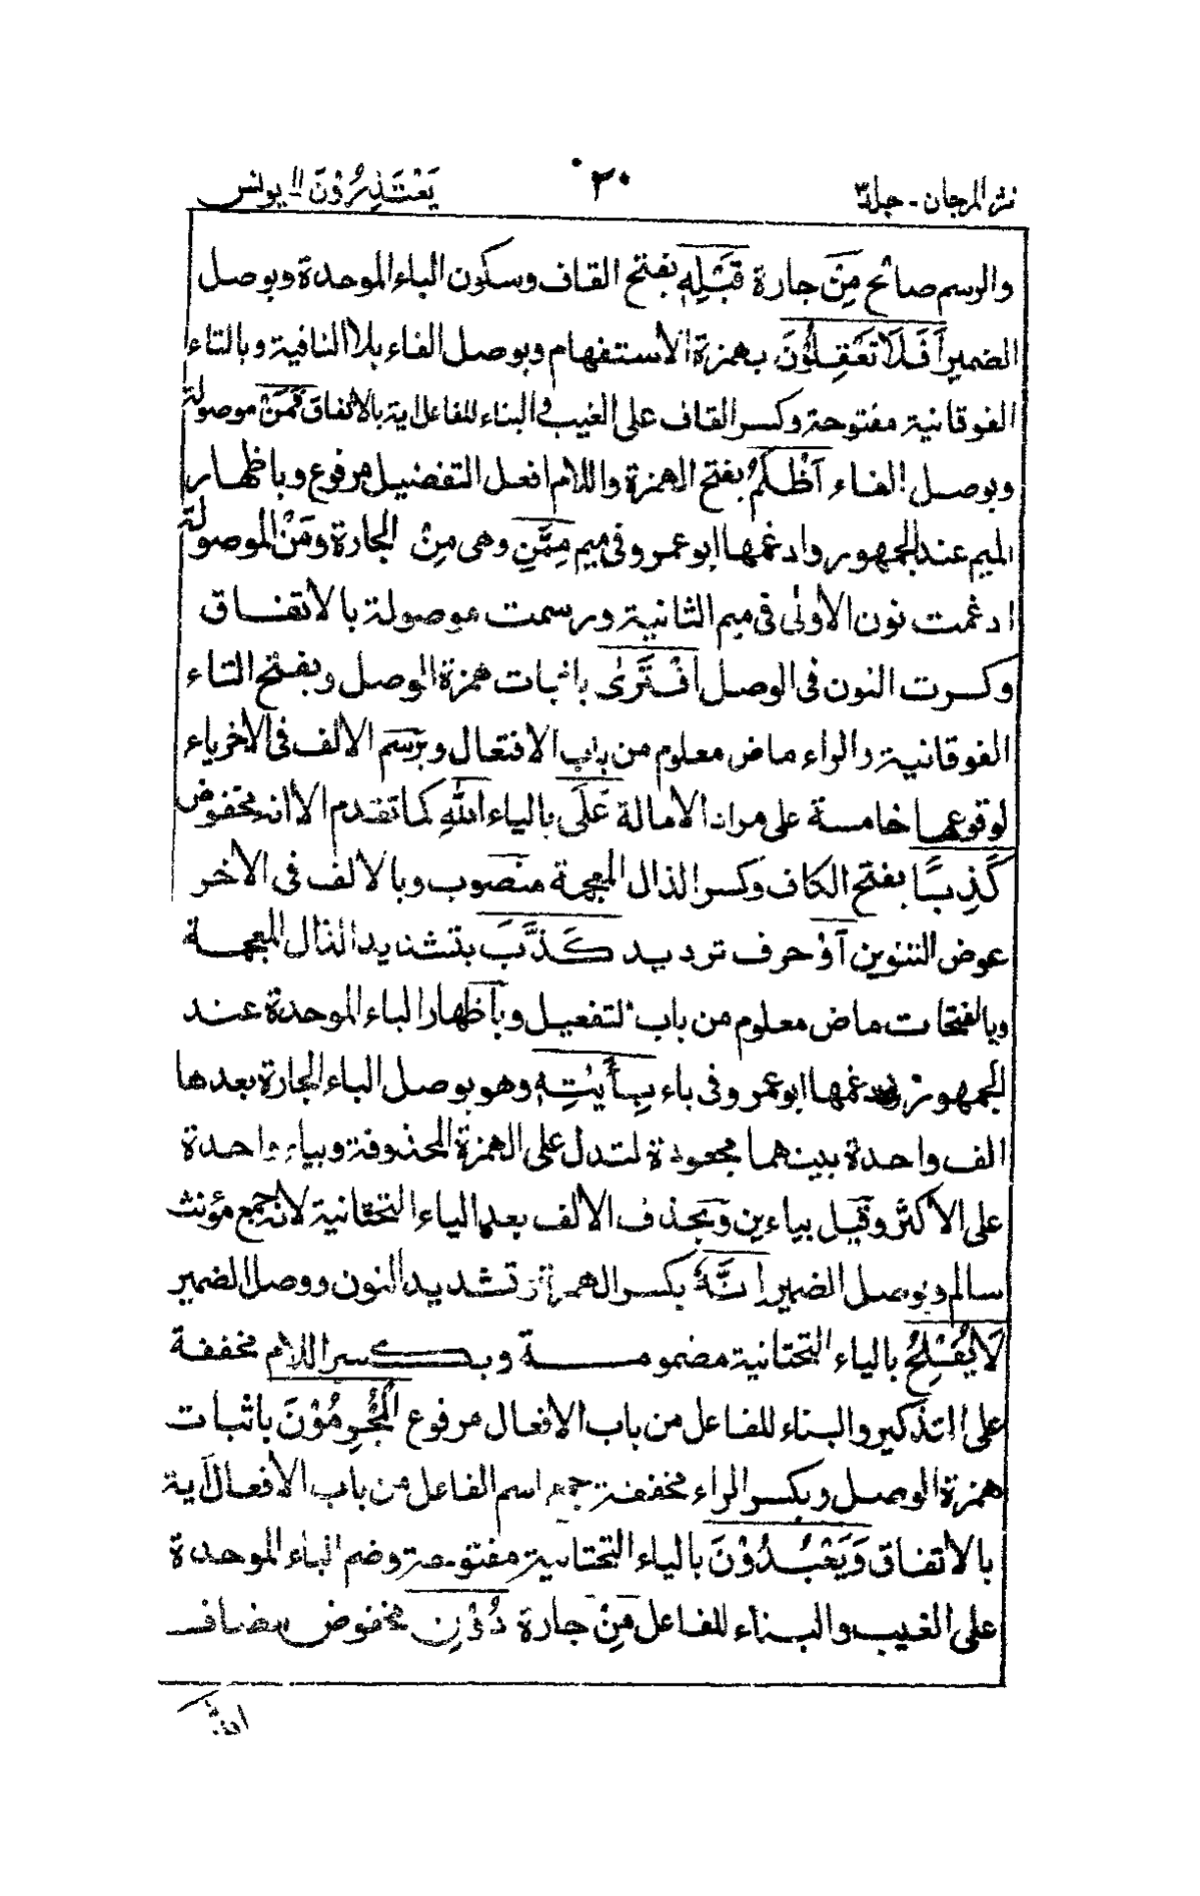 نثر المرجان - جلد٣
٢٠
يَعْتَذِرُوْنَ ١١ يونس
والرسم صالح مِنْ جارة قَبْلِهٖ بفتح القاف وسكون الباء الموحدة وبوصل
الضمير اَفَلَا تَعْقِلُوْنَ بهمزة الاستفهام وبوصل الفاء بلا النافية وبالتاء
الفوقانية مفتوحة وكسر القاف على الغيب فى البناء للفاعل اية بالاتفاق فَمَنْ موصولة
وبوصل الفاء اَظْلَمُ بفتح الهمزة واللام افعل التفضيل مرفوع وباظهار
الميم عند الجمهور وادغمها ابو عمرو فى ميم مِمَّنِ وهى مِنْ الجارة ومَنْ الموصولة
ادغمت نون الاولى فى ميم الثانية ورسمت موصولة بالاتفاق
وكسرت النون فى الوصل افْتَرٰى باثبات همزة الوصل وبفتح التاء
الفوقانية والراء ماض معلوم من باب الافتعال وبرسم الالف فى الاخر ياء
لوقوعها خامسة على مراد الامالة عَلَى بالياء اللهِ كما تقدم الا انه مخفوض
كَذِبًا بفتح الكاف وكسر الذال المعجمة منصوب وبالالف فى الاخر
عوض التنوين اَوْ حرف ترديد كَذَّبَ بتشديد الذال المعجمة
وبالفتحات ماض معلوم من باب التفعيل وباظهار الباء الموحدة عند
الجمهور وادغمها ابو عمرو فى باء بِاٰيٰتِهٖ وهو بوصل الباء الجارة بعدها
الف واحدة بينهما مجعودة لتدل على الهمزة المحذوفة وبياء واحدة
على الاكثر وقيل بياءين وبحذف الالف بعد الياء التحتانية لانه جمع مؤنث
سالم وبوصل الضمير اِنَّهٗ بكسر الهمزة وتشديد النون ووصل الضمير
لَا يُفْلِحُ بالياء التحتانية مضمومة وبكسر اللام مخففة
على التذكير والبناء للفاعل من باب الافعال مرفوع الْمُجْرِمُوْنَ باثبات
همزة الوصل وبكسر الراء مخففة جمع اسم الفاعل من باب الافعال اية
بالاتفاق وَيَعْبُدُوْنَ بالياء التحتانية مفتوحة وضم الباء الموحدة
على الغيب والبناء للفاعل مِنْ جارة دُوْنِ مخفوض مضاف
الله